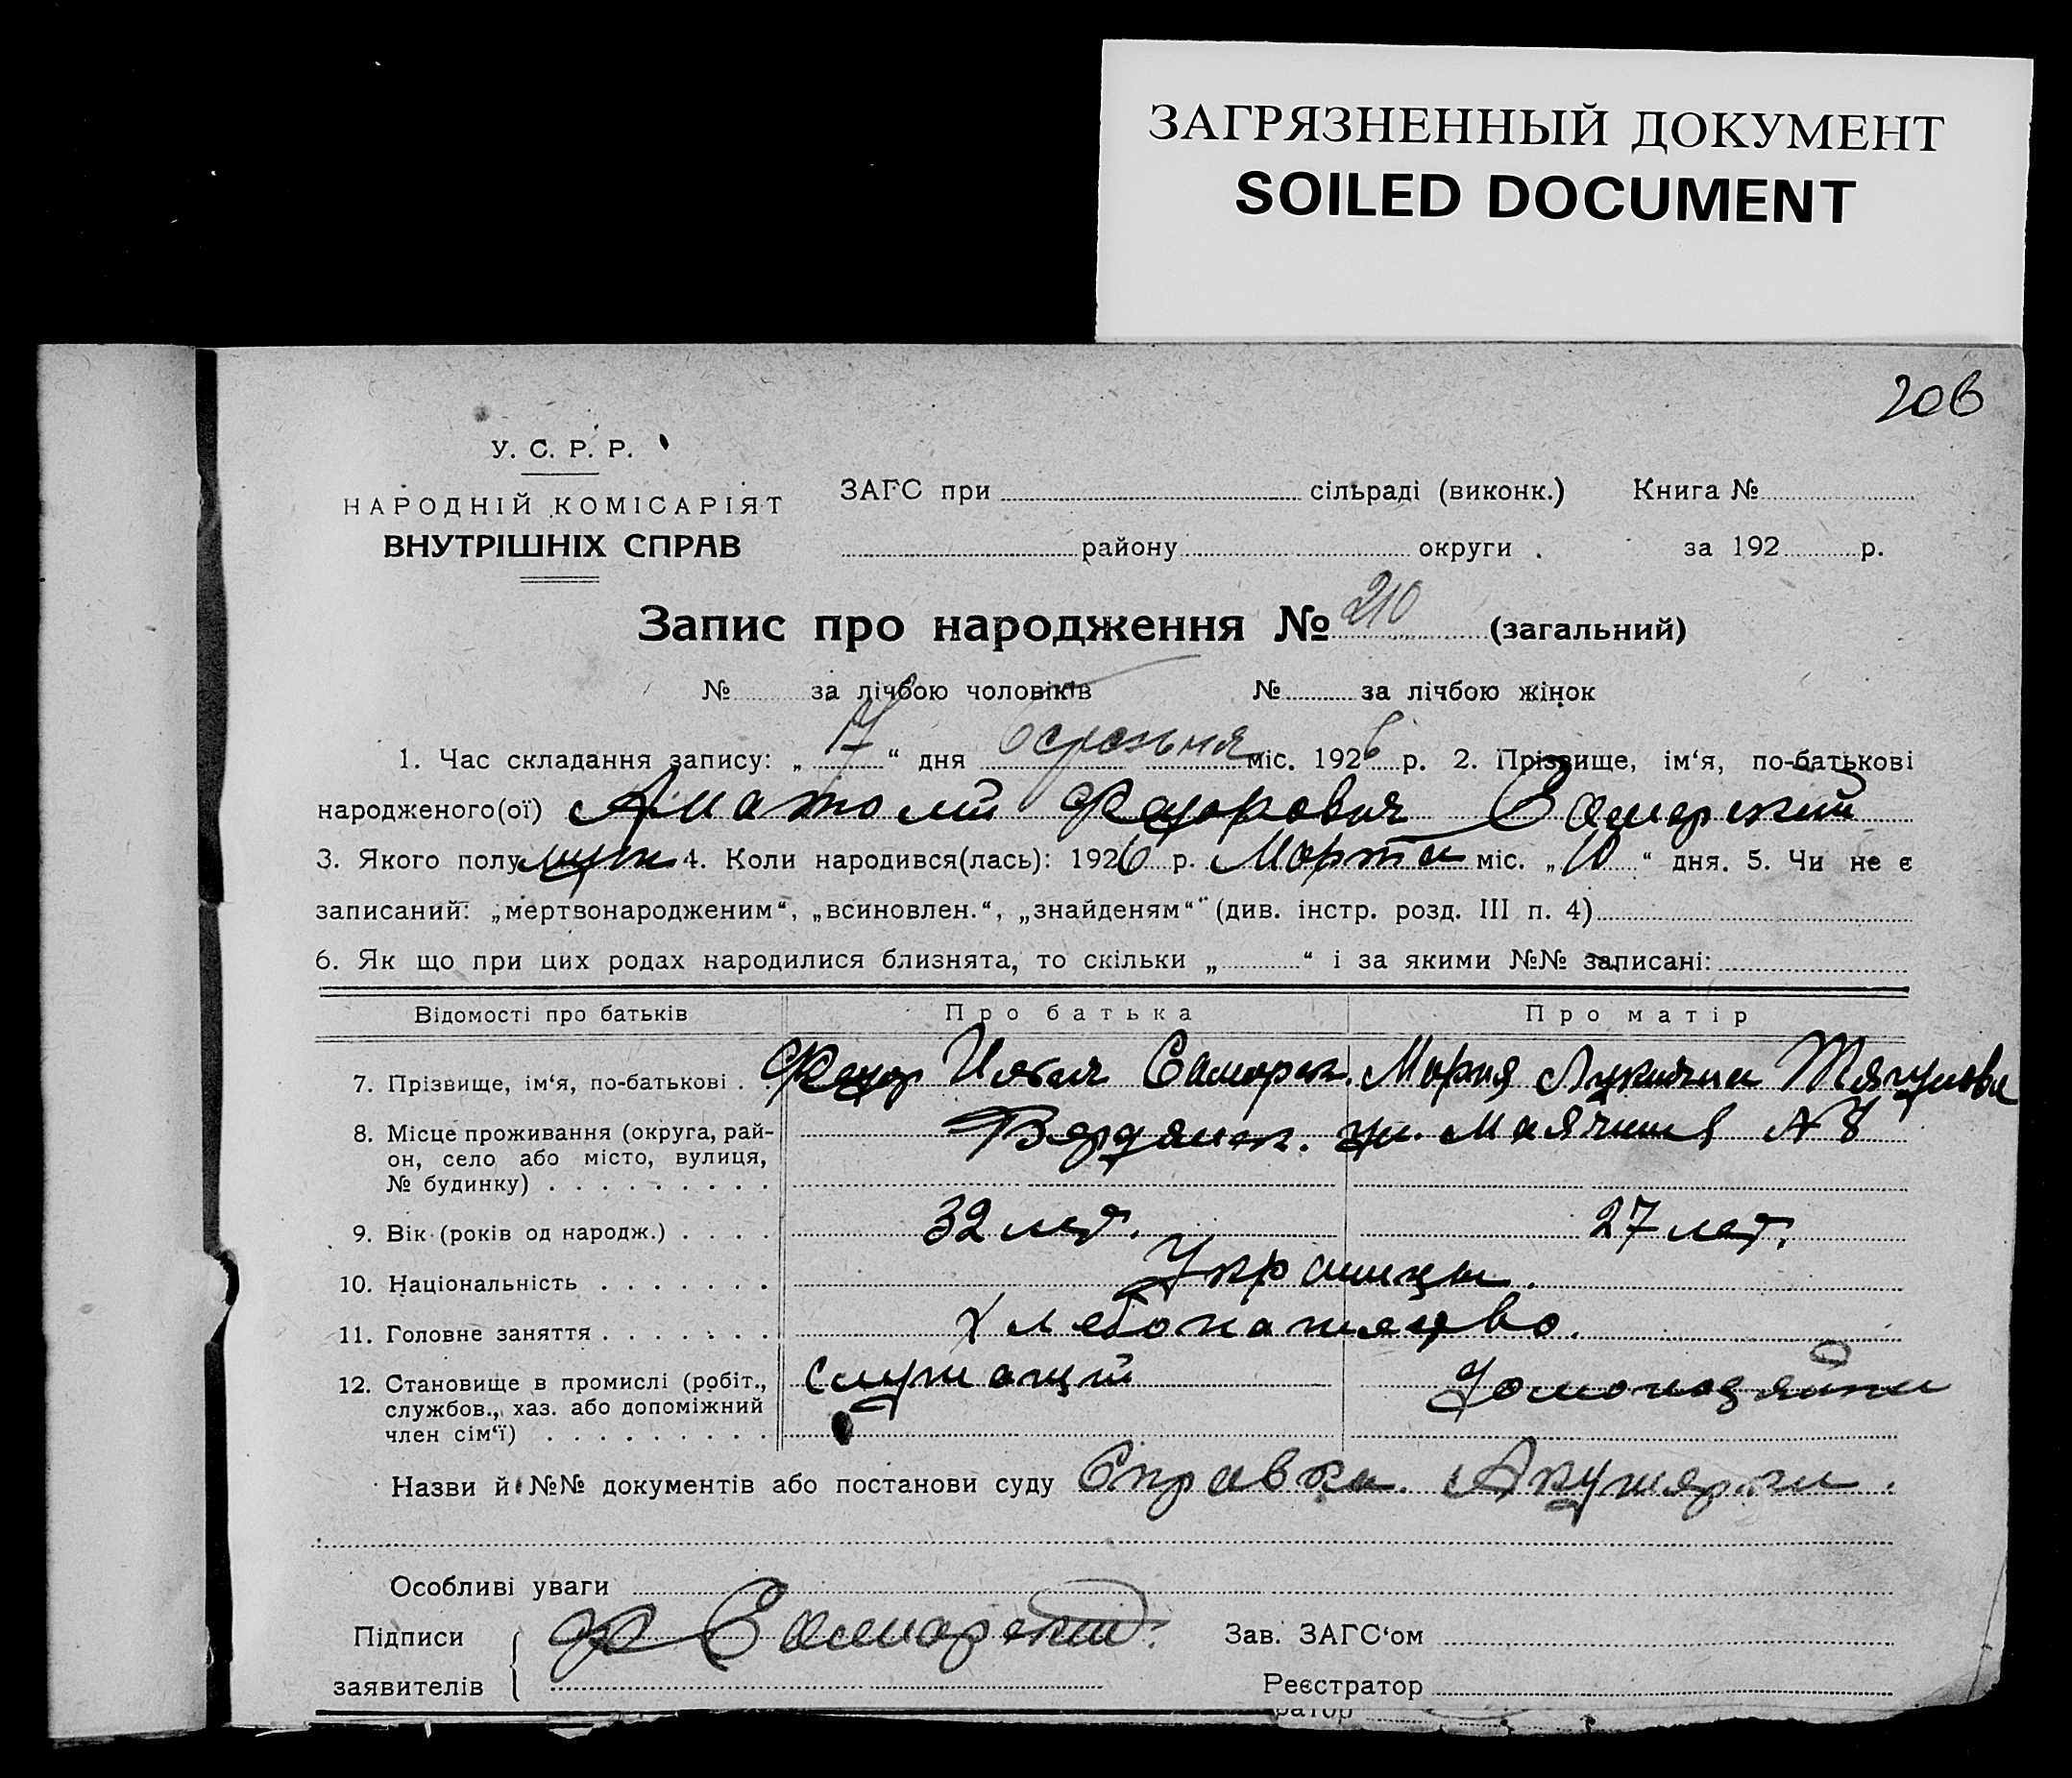 ЗАГРЯЗНЕННЫЙ ДОКУМЕНТ
SOILED DOCUMENT
206
У. С. Р. Р.
НАРОДНІЙ КОМІСАРІЯТ
ВНУТРІШНІХ СПРАВ
ЗАГС при сільраді (виконк.) Книга №
району округи за 192 р.
Запис про народження № 210 (загальний)
№ за лічбою чоловіків № за лічбою жінок
1. Час складання запису: „17“ дня березня міс. 1926 р. 2. Прізвище, ім‘я, по-батькові
народженого(ої) Анатолий Федорович Самарский
3. Якого полу муж 4. Коли народився(лась): 1926 р. Марта міс. „10“ дня. 5. Чи не є
записаний: „мертвонародженим“, „всиновлен.“, „знайденям“ (див. інстр. розд. III п. 4)
6. Як що при цих родах народилися близнята, то скільки „ “ і за якими №№ записані:
Відомості про батьків Про батька Про матір
7. Прізвище, ім‘я, по-батькові . Федор Самарск. Мария Лукинична
8. Місце проживання (округа, рай-
он, село або місто, вулиця,
№ будинку) . . . . . . . . . Бердянск. ул.
9. Вік (років од народж.) . . . . 32 лет. 27 лет.
10. Національність . . . . . . . Украинцы.
11. Головне заняття . . . . . . .
12. Становище в промислі (робіт.,
службов., хаз. або допоміжний
член сім‘ї) . . . . . . . . . Служащий Домохозяйка
Назви й №№ документів або постанови суду Справка Акушерки.
Особливі уваги
Підписи
заявителів Ф Самарский.
Зав. ЗАГС‘ом
Реєстратор
ратор